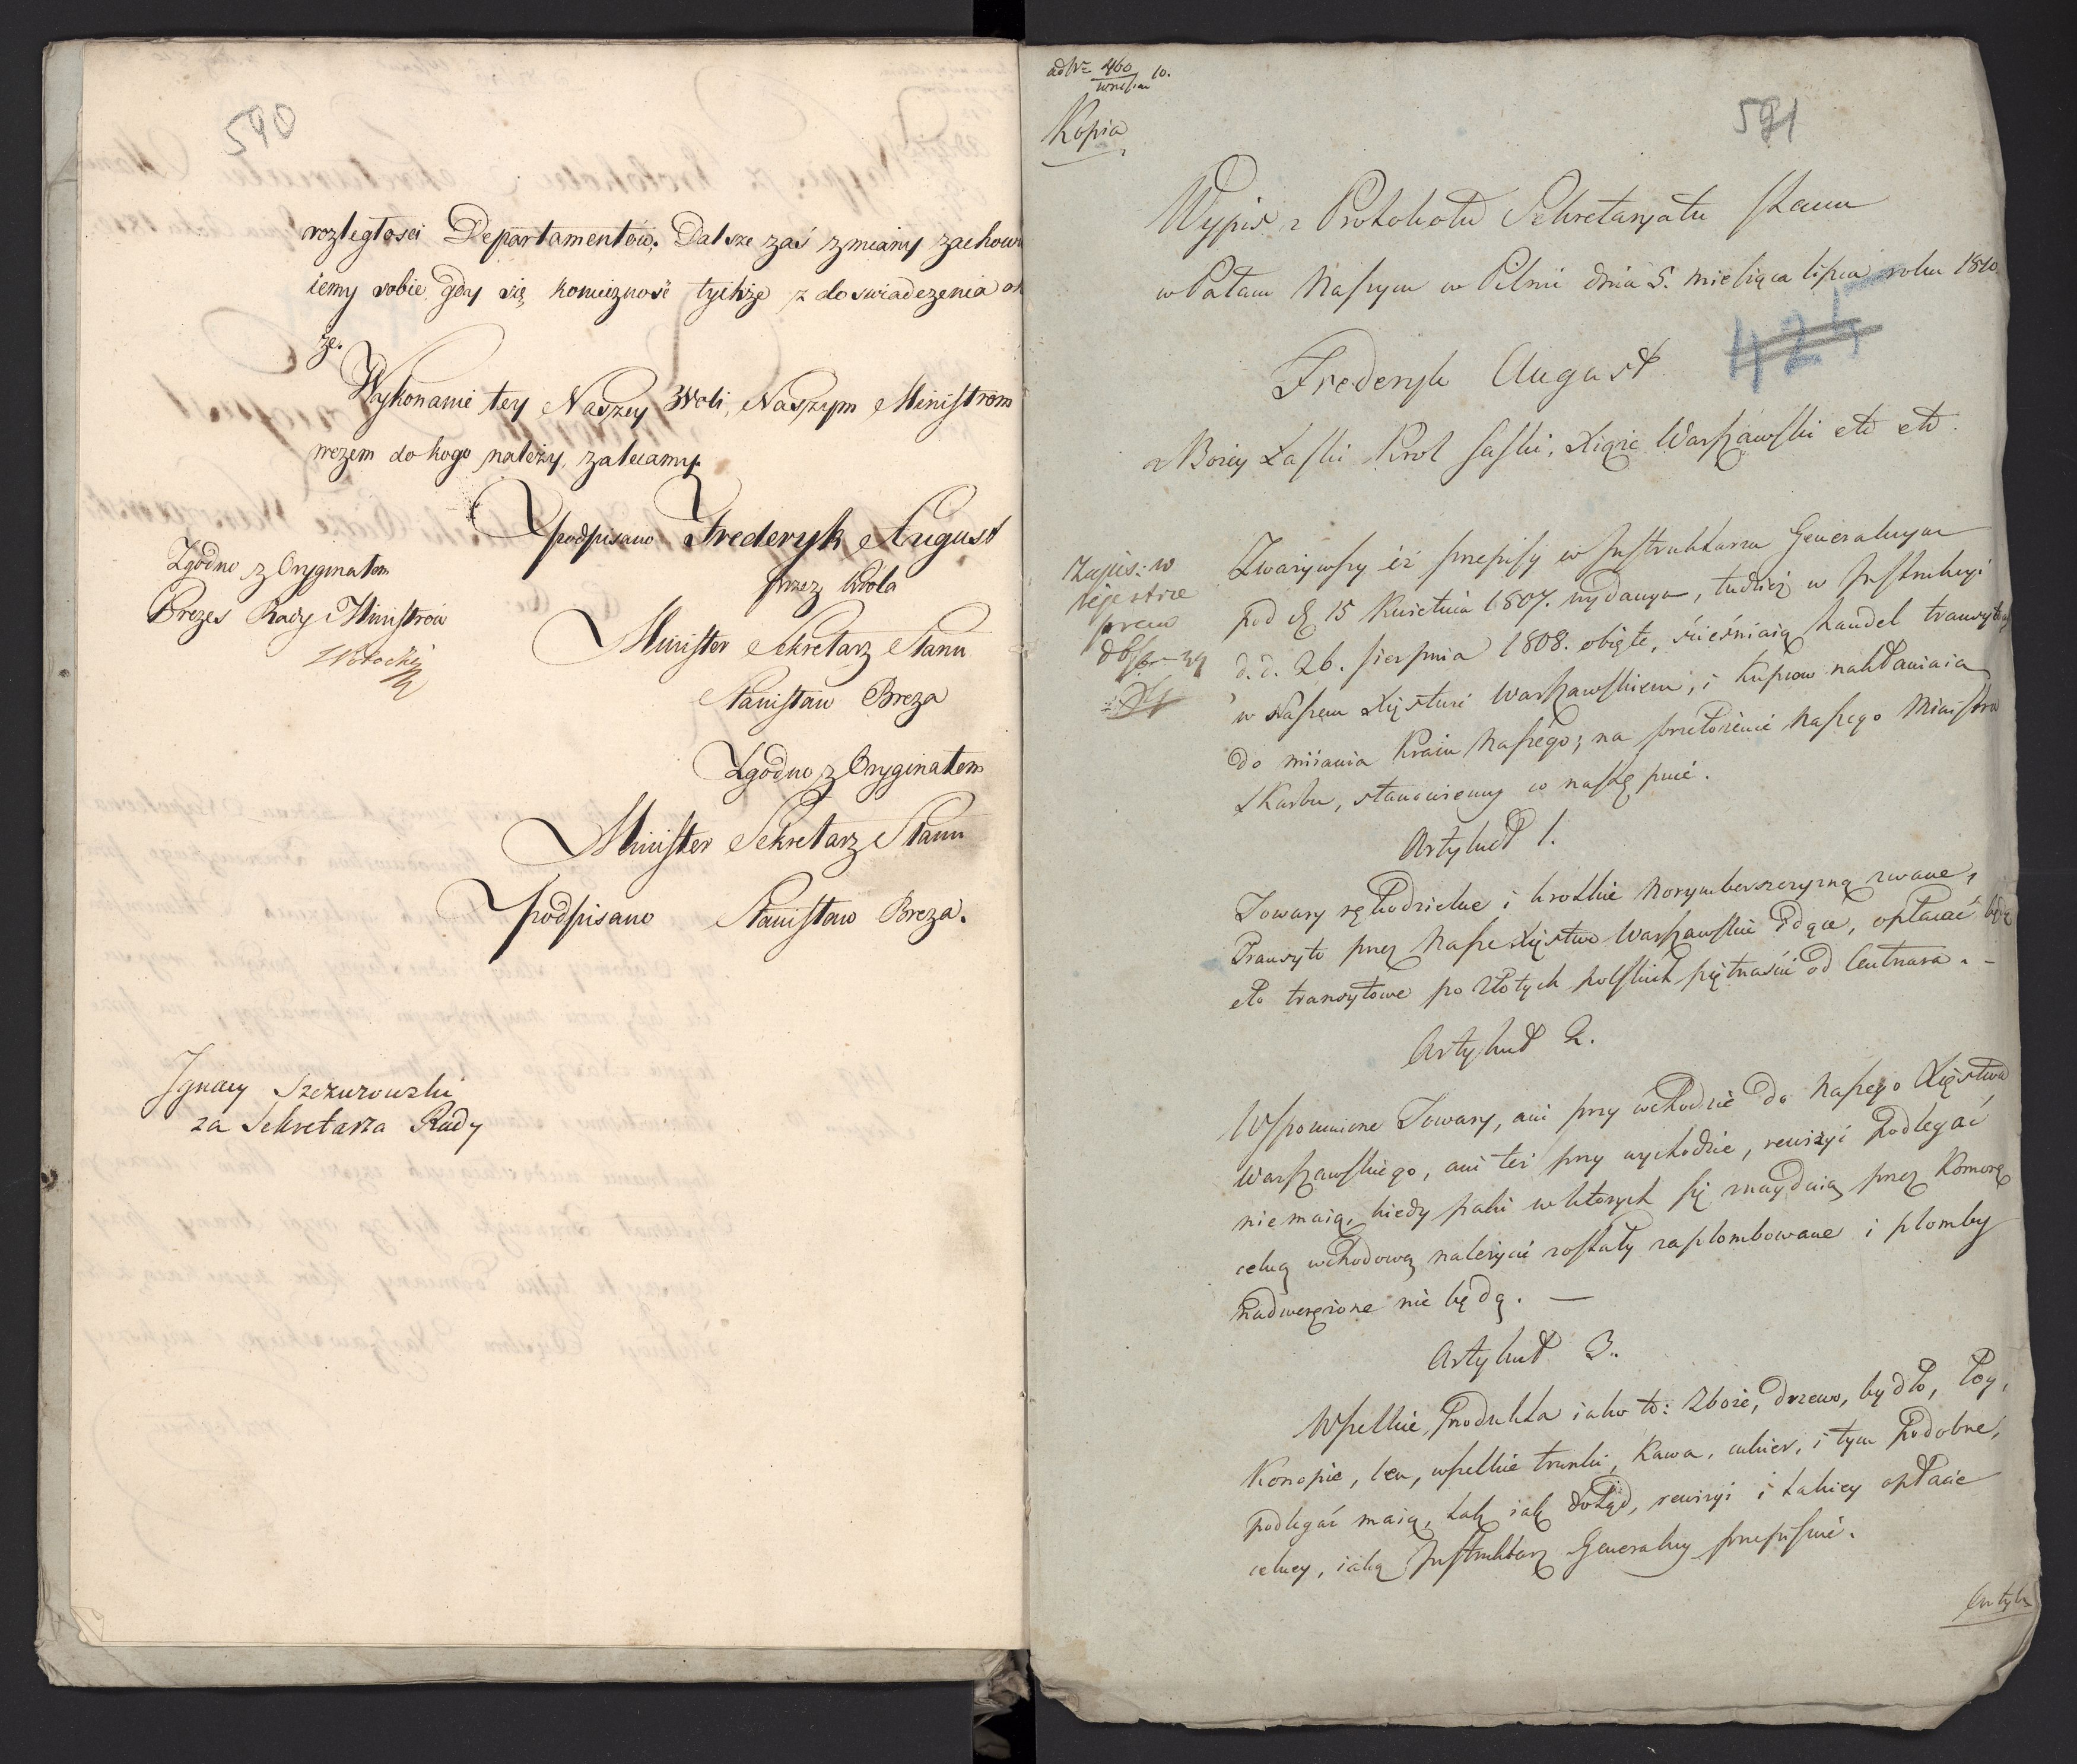 590
rozległosci Departamentów. Dalsze zaś zmiany zachow
iemy sobie gdy się konieczność tychże z doswiadczenia ok
że.
Wykonanie tey Naszey Woli, Naszym Ministrom
wczem do kogo należy, zalecamy.
podpisano Frederyk August
przez Króla
Minister Sekretarz Stanu
Stanisław Breza
Zgodno z Oryginałem
Minister Sekretarz Stanu
podpisano Stanisław Breza.
Zgodno z Oryginałem
Prezes Rady Ministrów
Ignacy Szczurowski
za Sekretarza Rady
ad Nr 460 10.
Kopia
591
Wypis z Protokołu Sekretaryatu Stanu
w Pałacu Naszym w Pilnic dnia 5. miesiąca lipca roku 1810
424
Frederyk August
z Bożey Łaski Krol Saski, Xiąże Warszawski etc etc.
Zapis: w
rejestrze
praw
Zważywszy iż przepisy w Instruktarzu Generalnym
pod d. 15 Kwietnia 1807. wydanym, tudzież w Instrukcyi
d. d. 26. sierpnia 1808. obięte, ścieśniaią handel tranzyto
w Naszem Xięstwie Warszawskiem, i Kupcow nakłaniaia
do miiania Kraiu Naszego; na przełożenie Naszego Ministra
Skarbu, stanowiemy co nastę puie.
Artykuł 1.
Towary rękodzielne i krotkie Norymberszczyzną zwane,
Transyto przez Nasze Xięstwo Warszawskie Idące, opłacać będą
cło transytowe po złotych polskich piętnaście od Centnara. -
Artykuł 2.
Wspomnione Towary, ani przy wchodzie do Naszego Xięstwa
Warszawskiego, ani też przy wychodzie, rewizyi Podlegać
nie maią, kiedy paki w ktorych się znayduią przez Komorę
celną wchodową należycie zostały zaplombowane i plomby
Nadwerężone nie będą. —
Artykuł 3.
Wszelkie Produkta iako to: Zboże, drzewo, bydło, Łoy,
Konopie, len, wszelkie trunki, Kawa, cukier, i tym Podobne,
podlegać maią, tak iak dotąd, rewizyi i takiey opłacie
celney, iaką Instruktarz Generalny przepisuie.
Artyk